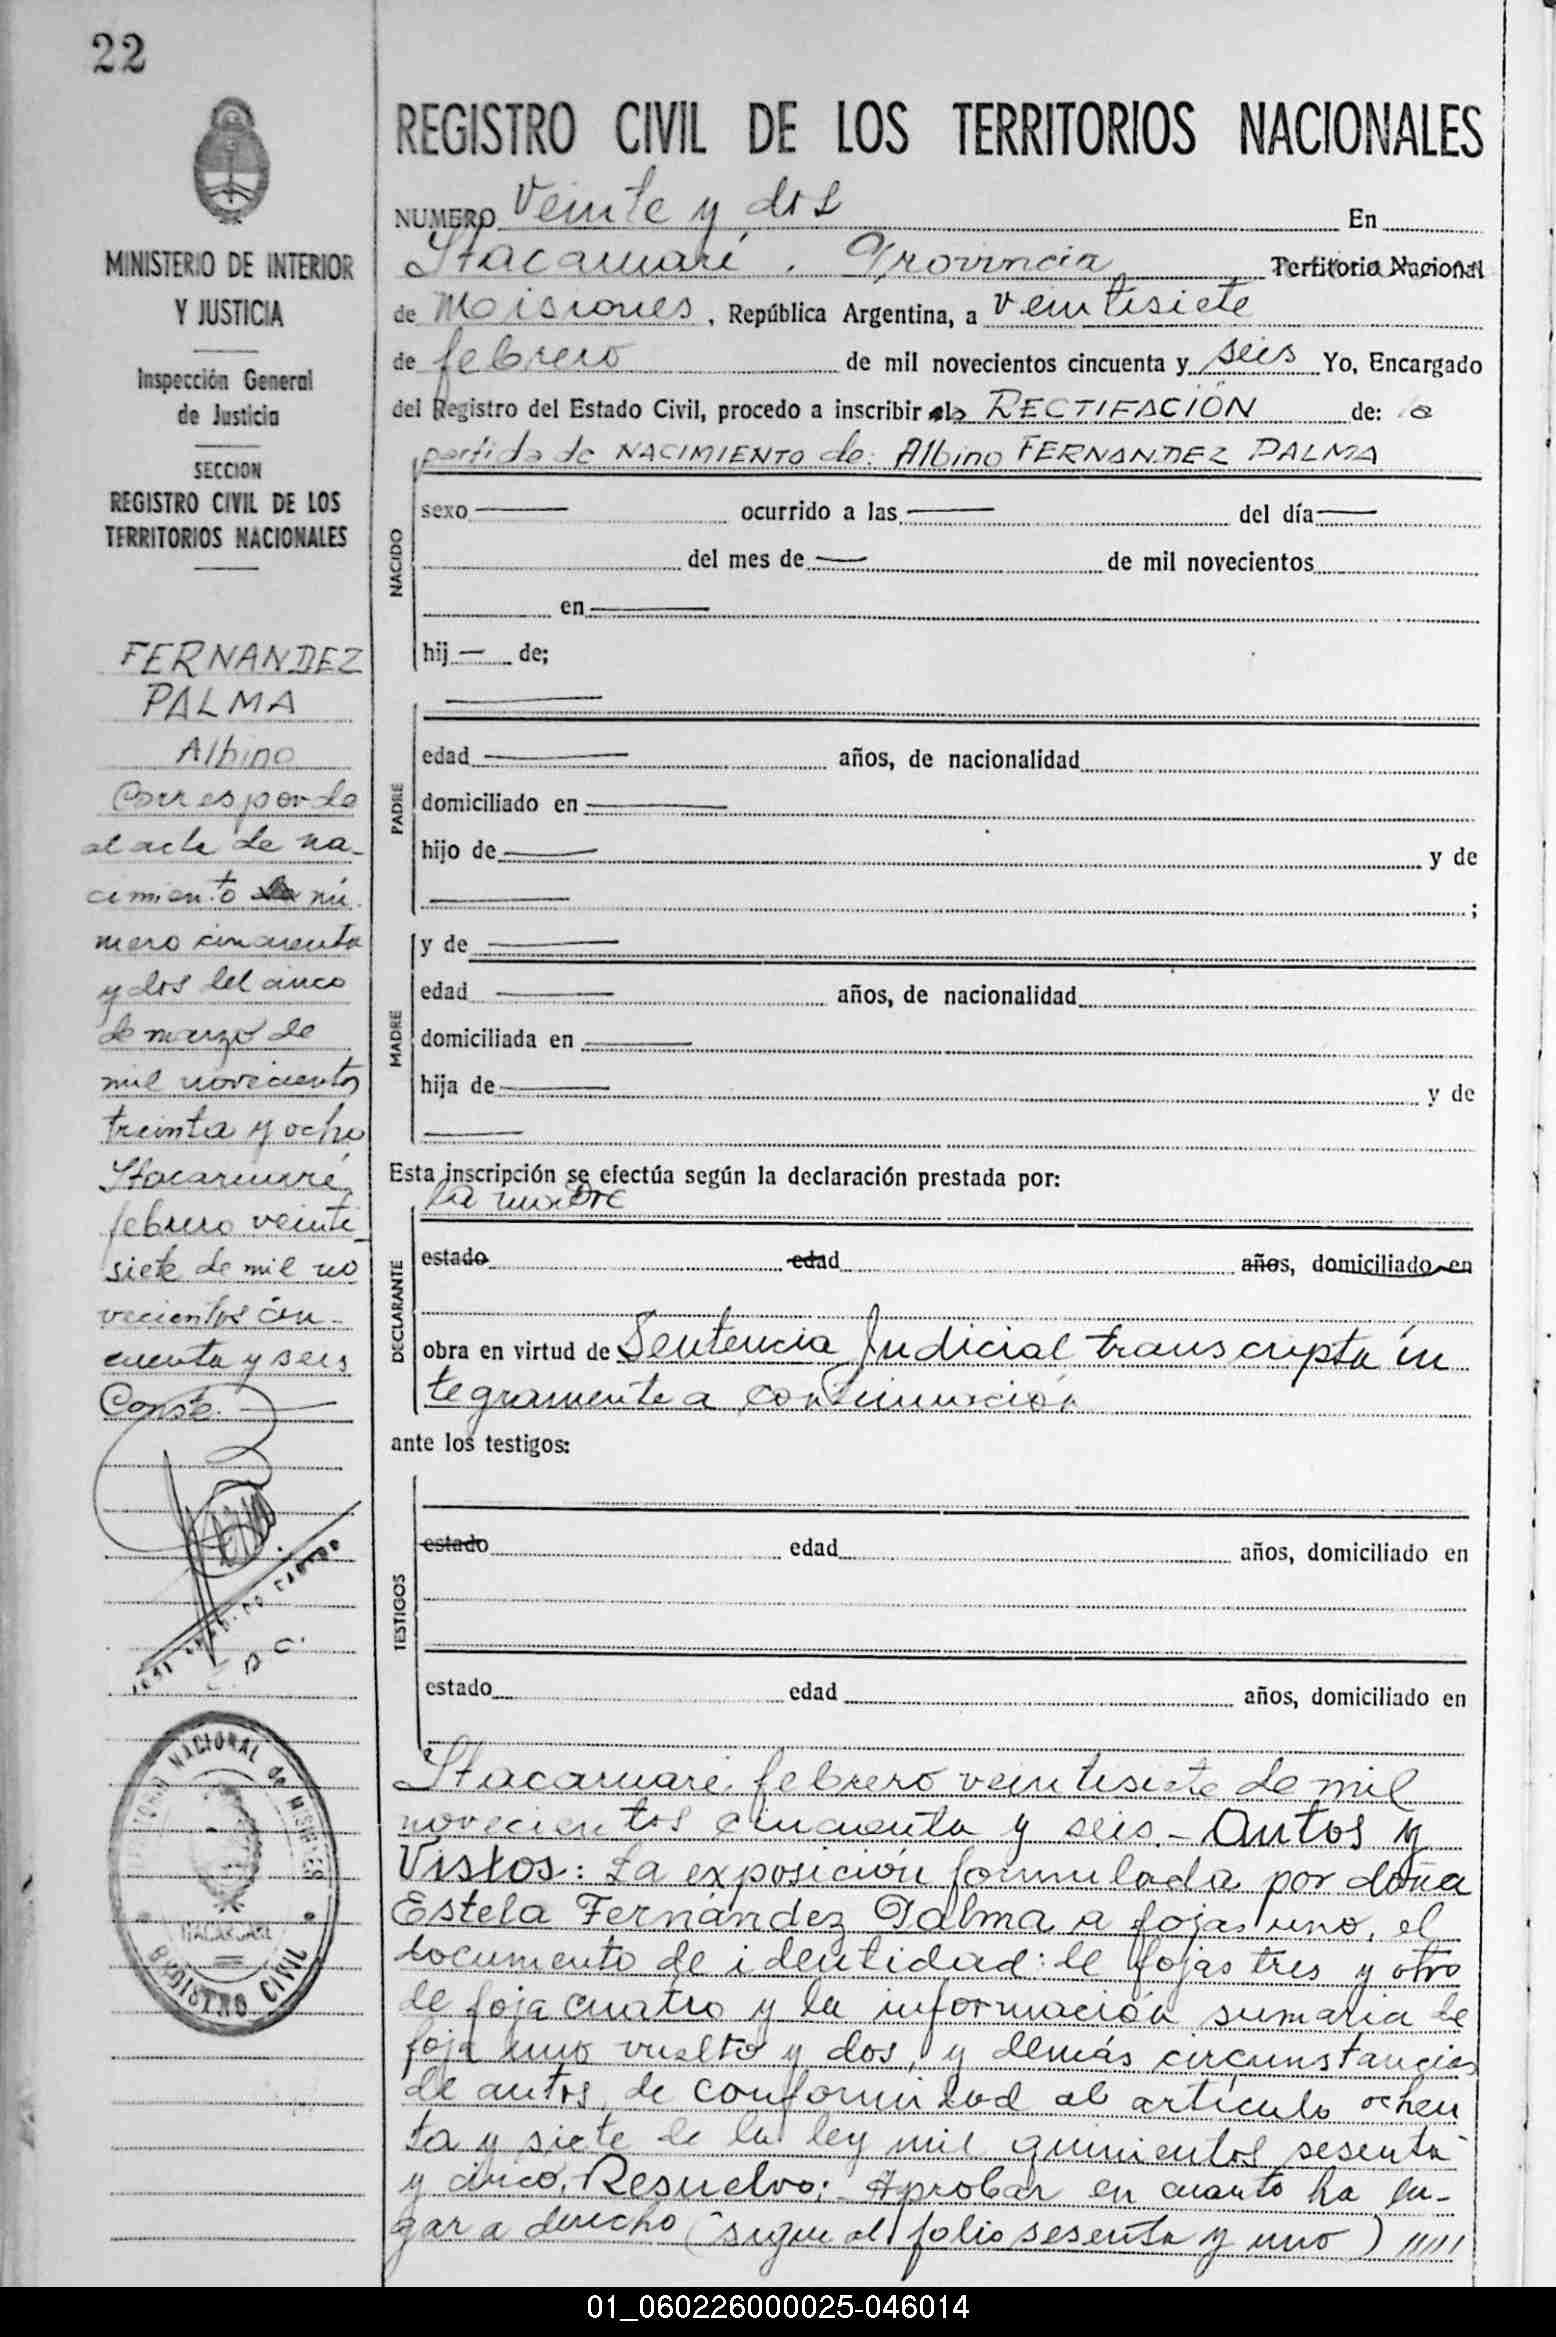 22
MINISTERIO DE INTERIOR
Y JUSTICIA
Inspección General
de Justicia
SECCION
REGISTRO CIVIL DE LOS
TERRITORIOS NACIONALES
FERNANDEZ
PALMA
Albino
Corresponde
al acta de na-
cimiento nú-
mero cincuenta
y dos del cinco
de marzo de
mil novecientos
treinta y ocho
Itacaruaré,
febrero veinti-
siete de mil no
vecientos cin-
cuenta y seis
Conste.
NACIONAL de MISIONES
ITACARUARE
REGISTRO CIVIL
REGISTRO CIVIL DE LOS TERRITORIOS NACIONALES
NUMERO Veinte y dos En
Itacaruaré, Provincia Territorio Nacional
de Misiones, República Argentina, a veintisiete
de febrero de mil novecientos cincuenta y seis Yo, Encargado
del Registro del Estado Civil, procedo a inscribir la RECTIFACIÓN de: la
partida de NACIMIENTO de: Albino FERNANDEZ PALMA
NACIDO
sexo ocurrido a las del día
del mes de de mil novecientos
en
hij de;
PADRE
edad años, de nacionalidad
domiciliado en
hijo de y de
;
MADRE
y de
edad años, de nacionalidad
domiciliada en
hija de y de
Esta inscripción se efectúa según la declaración prestada por:
la madre
DECLARANTE
estado edad años, domiciliado en
obra en virtud de Sentencia Judicial transcripta ín
tegramente a continuación
ante los testigos:
TESTIGOS
estado edad años, domiciliado en
estado edad años, domiciliado en
Itacaruaré, febrero veintisiete de mil
novecientos cincuenta y seis.- Autos y
Vistos: La exposición formulada por doña
Estela Fernández Palma a fojas uno, el
documento de identidad: de fojas tres y otro
de foja cuatro y la información sumaria de
foja uno vuelto y dos, y demás circunstancias
de autos, de conformidad al artículo ochen
ta y siete de la ley mil quinientos sesenta
y cinco, Resuelvo: Aprobar en cuanto ha lu-
gar a derecho (sigue al folio sesenta y uno) /////
01_060226000025-046014